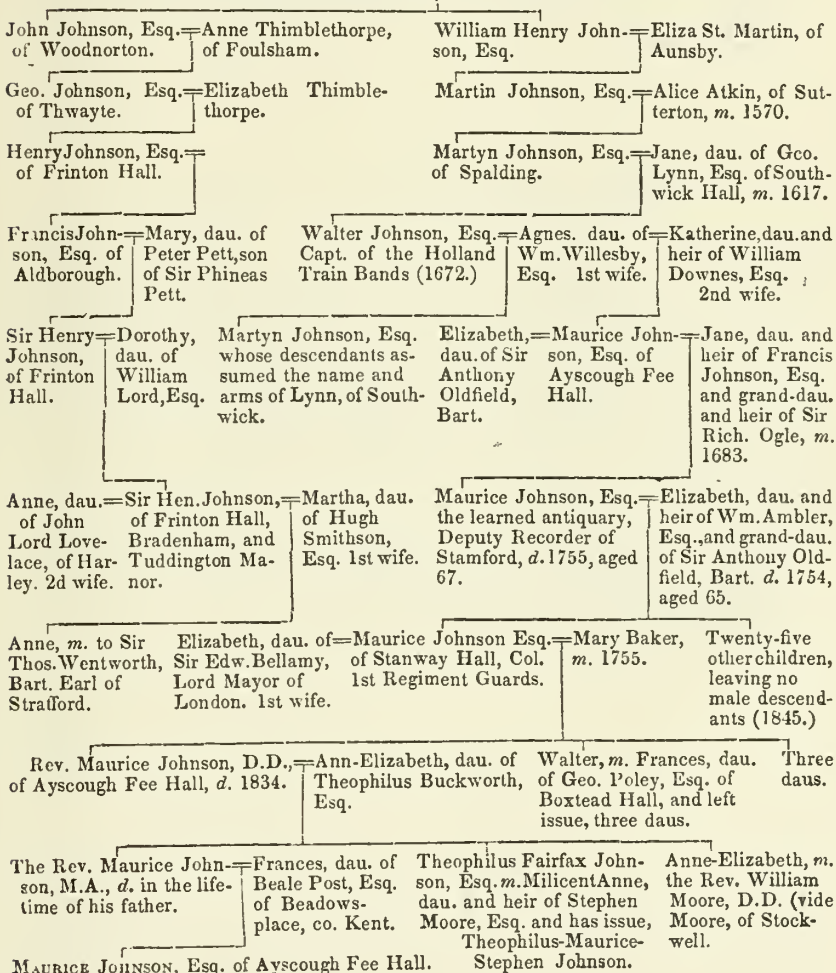 John Johnson, Esq.
of Woodnorton.
Anne Thimblethorpe,
of Foulsham.
William Henry John-
son, Esq.
Eliza St. Martin, of
Aunsby.
Geo. Johnson, Esq.
of Thwayte.
Elizabeth Thimble-
thorpe.
Martin Johnson, Esq.
Alice Atkin, of Sut-
terton, m. 1570.
Henry Johnson, Esq.
of Frinton Hall.
Martyn Johnson, Esq.
of Spalding.
Jane, dau. of Geo.
Lynn, Esq. of South-
wick Hall, m. 1617.
Francis John-
son, Esq. of
Aldborough.
Mary, dau. of
Peter Pett, son
of Sir Phineas
Pett.
Walter Johnson, Esq.
Capt. of the Holland
Train Bands (1672.)
Agnes. dau. of
Wm. Willesby,
Esq. 1st wife.
Katherine, dau. and
heir of William
Downes, Esq.
2nd wife.
Sir Henry
Johnson,
of Frinton
Hall.
Dorothy,
dau. of
William
Lord, Esq.
Martyn Johnson, Esq.
whose descendants as-
sumed the name and
arms of Lynn, of South-
wick.
Elizabeth,
dau. of Sir
Anthony
Oldfield,
Bart.
Maurice John-
son, Esq. of
Ayscough Fee
Hall.
Jane, dau. and
heir of Francis
Johnson, Esq.
and grand-dau.
and heir of Sir
Rich. Ogle, m.
1683.
Anne, dau.
of John
Lord Love-
lace, of Har-
ley. 2d wife.
Sir Hen. Johnson,
of Frinton Hall,
Bradenham, and
Tuddington Ma-
nor.
Martha, dau.
of Hugh
Smithson,
Esq. 1st wife.
Maurice Johnson, Esq.
the learned antiquary,
Deputy Recorder of
Stamford, d. 1755, aged
67.
Elizabeth, dau. and
heir of Wm. Ambler,
Esq., and grand-dau.
of Sir Anthony Old-
field, Bart. d. 1754,
aged 65.
Anne, m. to Sir
Thos. Wentworth,
Bart. Earl of
Strafford.
Elizabeth, dau. of
Sir Edw. Bellamy,
Lord Mayor of
London. 1st wife.
Maurice Johnson Esq.
of Stanway Hall, Col.
1st Regiment Guards.
Mary Baker,
m. 1755.
Twenty-five
other children,
leaving no
male descend-
ants (1845.)
Rev. Maurice Johnson, D.D.,
of Ayscough Fee Hall, d. 1834.
Ann-Elizabeth, dau. of
Theophilus Buckworth,
Esq.
Walter, m. Frances, dau.
of Geo. Poley, Esq. of
Boxtead Hall, and left
issue, three daus.
Three
daus.
The Rev. Maurice John-
son, M.A., d. in the life-
time of his father.
Frances, dau. of
Beale Post, Esq.
of Beadows-
place, co. Kent.
Theophilus Fairfax John-
son, Esq. m. Milicent Anne,
dau. and heir of Stephen
Moore, Esq. and has issue,
Theophilus-Maurice-
Stephen Johnson.
Anne-Elizabeth, m.
the Rev. William
Moore, D.D. (vide
Moore, of Stock-
well.
MAURICE JOHNSON, Esq. of Ayscough Fee Hall.